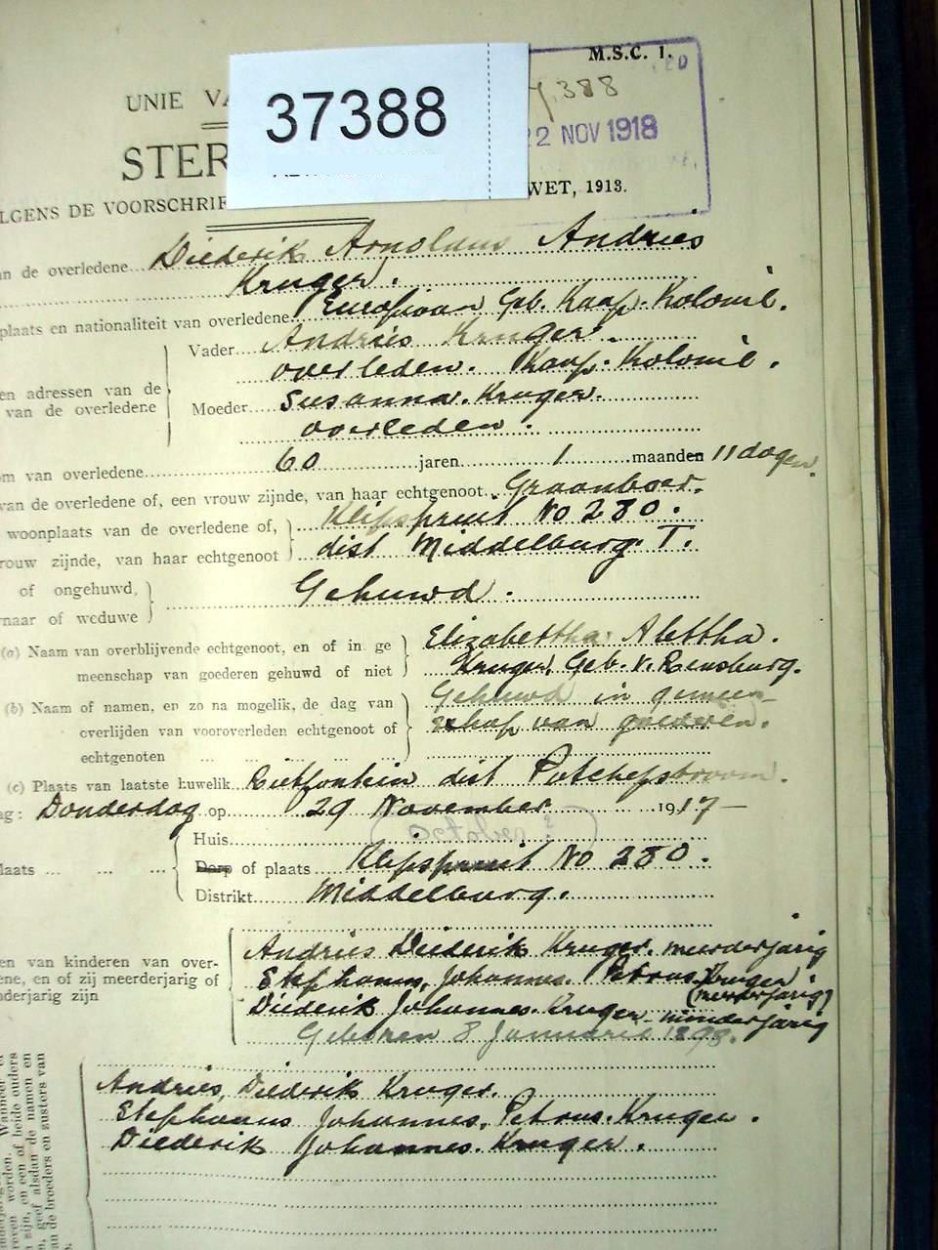 M.S.C. 1.
37388
7,388
22 NOV 1918
UNIE VA
STER
WET, 1913.
LGENS DE VOORSCHRIF
an de overledene Diederik Arnoldus Andries
Kruger.
plaats en nationaliteit van overledene Europiaan Geb. Kaap. Kolonie.
Vader Andries Kruger.
overleden. Kaap. Kolonie.
en adressen van de
van de overledene
Moeder Susanna. Kruger.
overleden.
om van overledene 60 jaren 1 maanden 11 dagen.
van de overledene of, een vrouw zijnde, van haar echtgenoot Graanboer.
woonplaats van de overledene of, Klipspruit No 280.
rouw zijnde, van haar echtgenoot dist Middelburg. T.
of ongehuwd, Gehuwd.
naar of weduwe
(a) Naam van overblijvende echtgenoot, en of in ge Elizabettha Alettha.
meenschap van goederen gehuwd of niet Kruger, Geb. v. Rensburg.
(b) Naam of namen, en zo na mogelik, de dag van Gehuwd in gemeen-
overlijden van vooroverleden echtgenoot of schap van goederen.
echtgenoten
(c) Plaats van laatste huwelik Rietfontein dist Potchefstroom.
ag: Donderdag op 29 November 1917-
Huis
laats Dorp of plaats Klipspruit No 280.
Distrikt Middelburg.
Andries Diederik Kruger. meerderjarig
en van kinderen van over-
ene, en of zij meerderjarig of Stephanus, Johannes. Petrus. Kruger
(meerderjarig)
nderjarig zijn Diederik Johannes. Kruger minderjarig
Geboren 8 Januarie 1898.
Andries, Diederik Kruger.
Stephanus Johannes, Petrus. Kruger.
Diederik Johannes. Kruger.